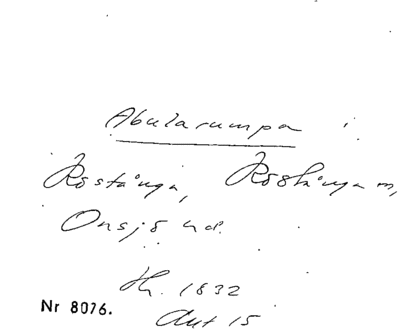 Abularumpa i
Röstånga, Röstånga m,
Onsjö hd.
Hh. 1832
Nr 8076.
Akt 15